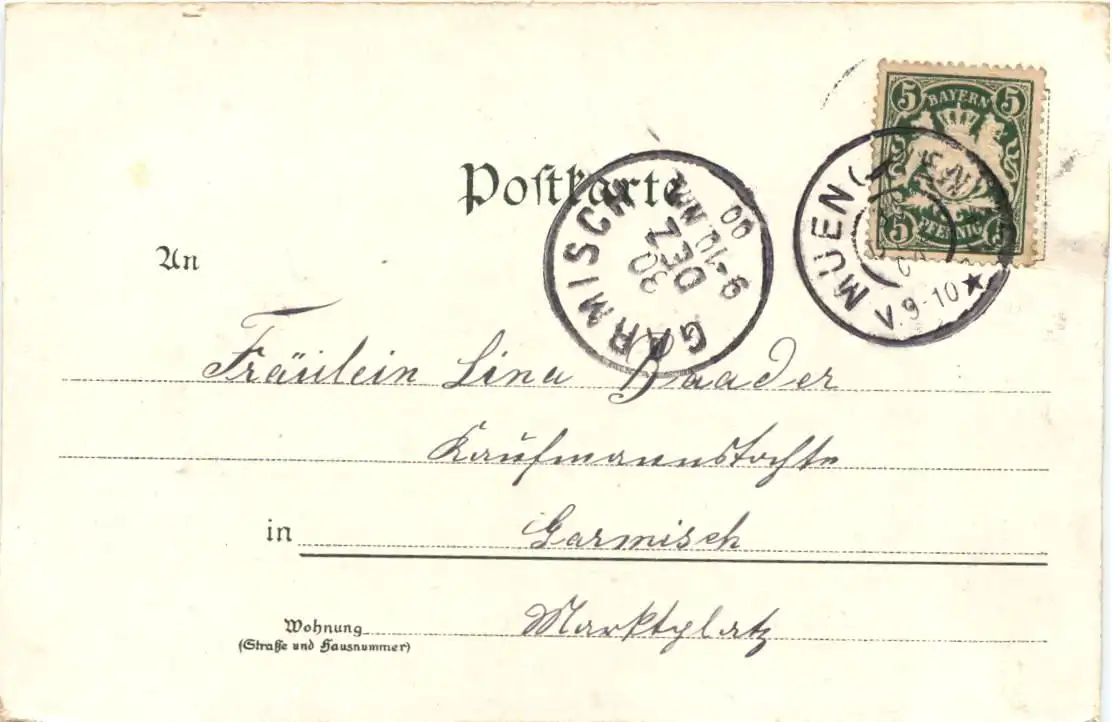 5 BAYERN 5
5 PFENNIG 5
MUEN
V.9-10 ★
Postkarte
GARMISCH
30
DEZ
9-10.NM
00
An
Fräulein Lina Baader
Kaufmannstochter
in Garmisch
Wohnung Marktplatz
(Straße und Hausnummer)